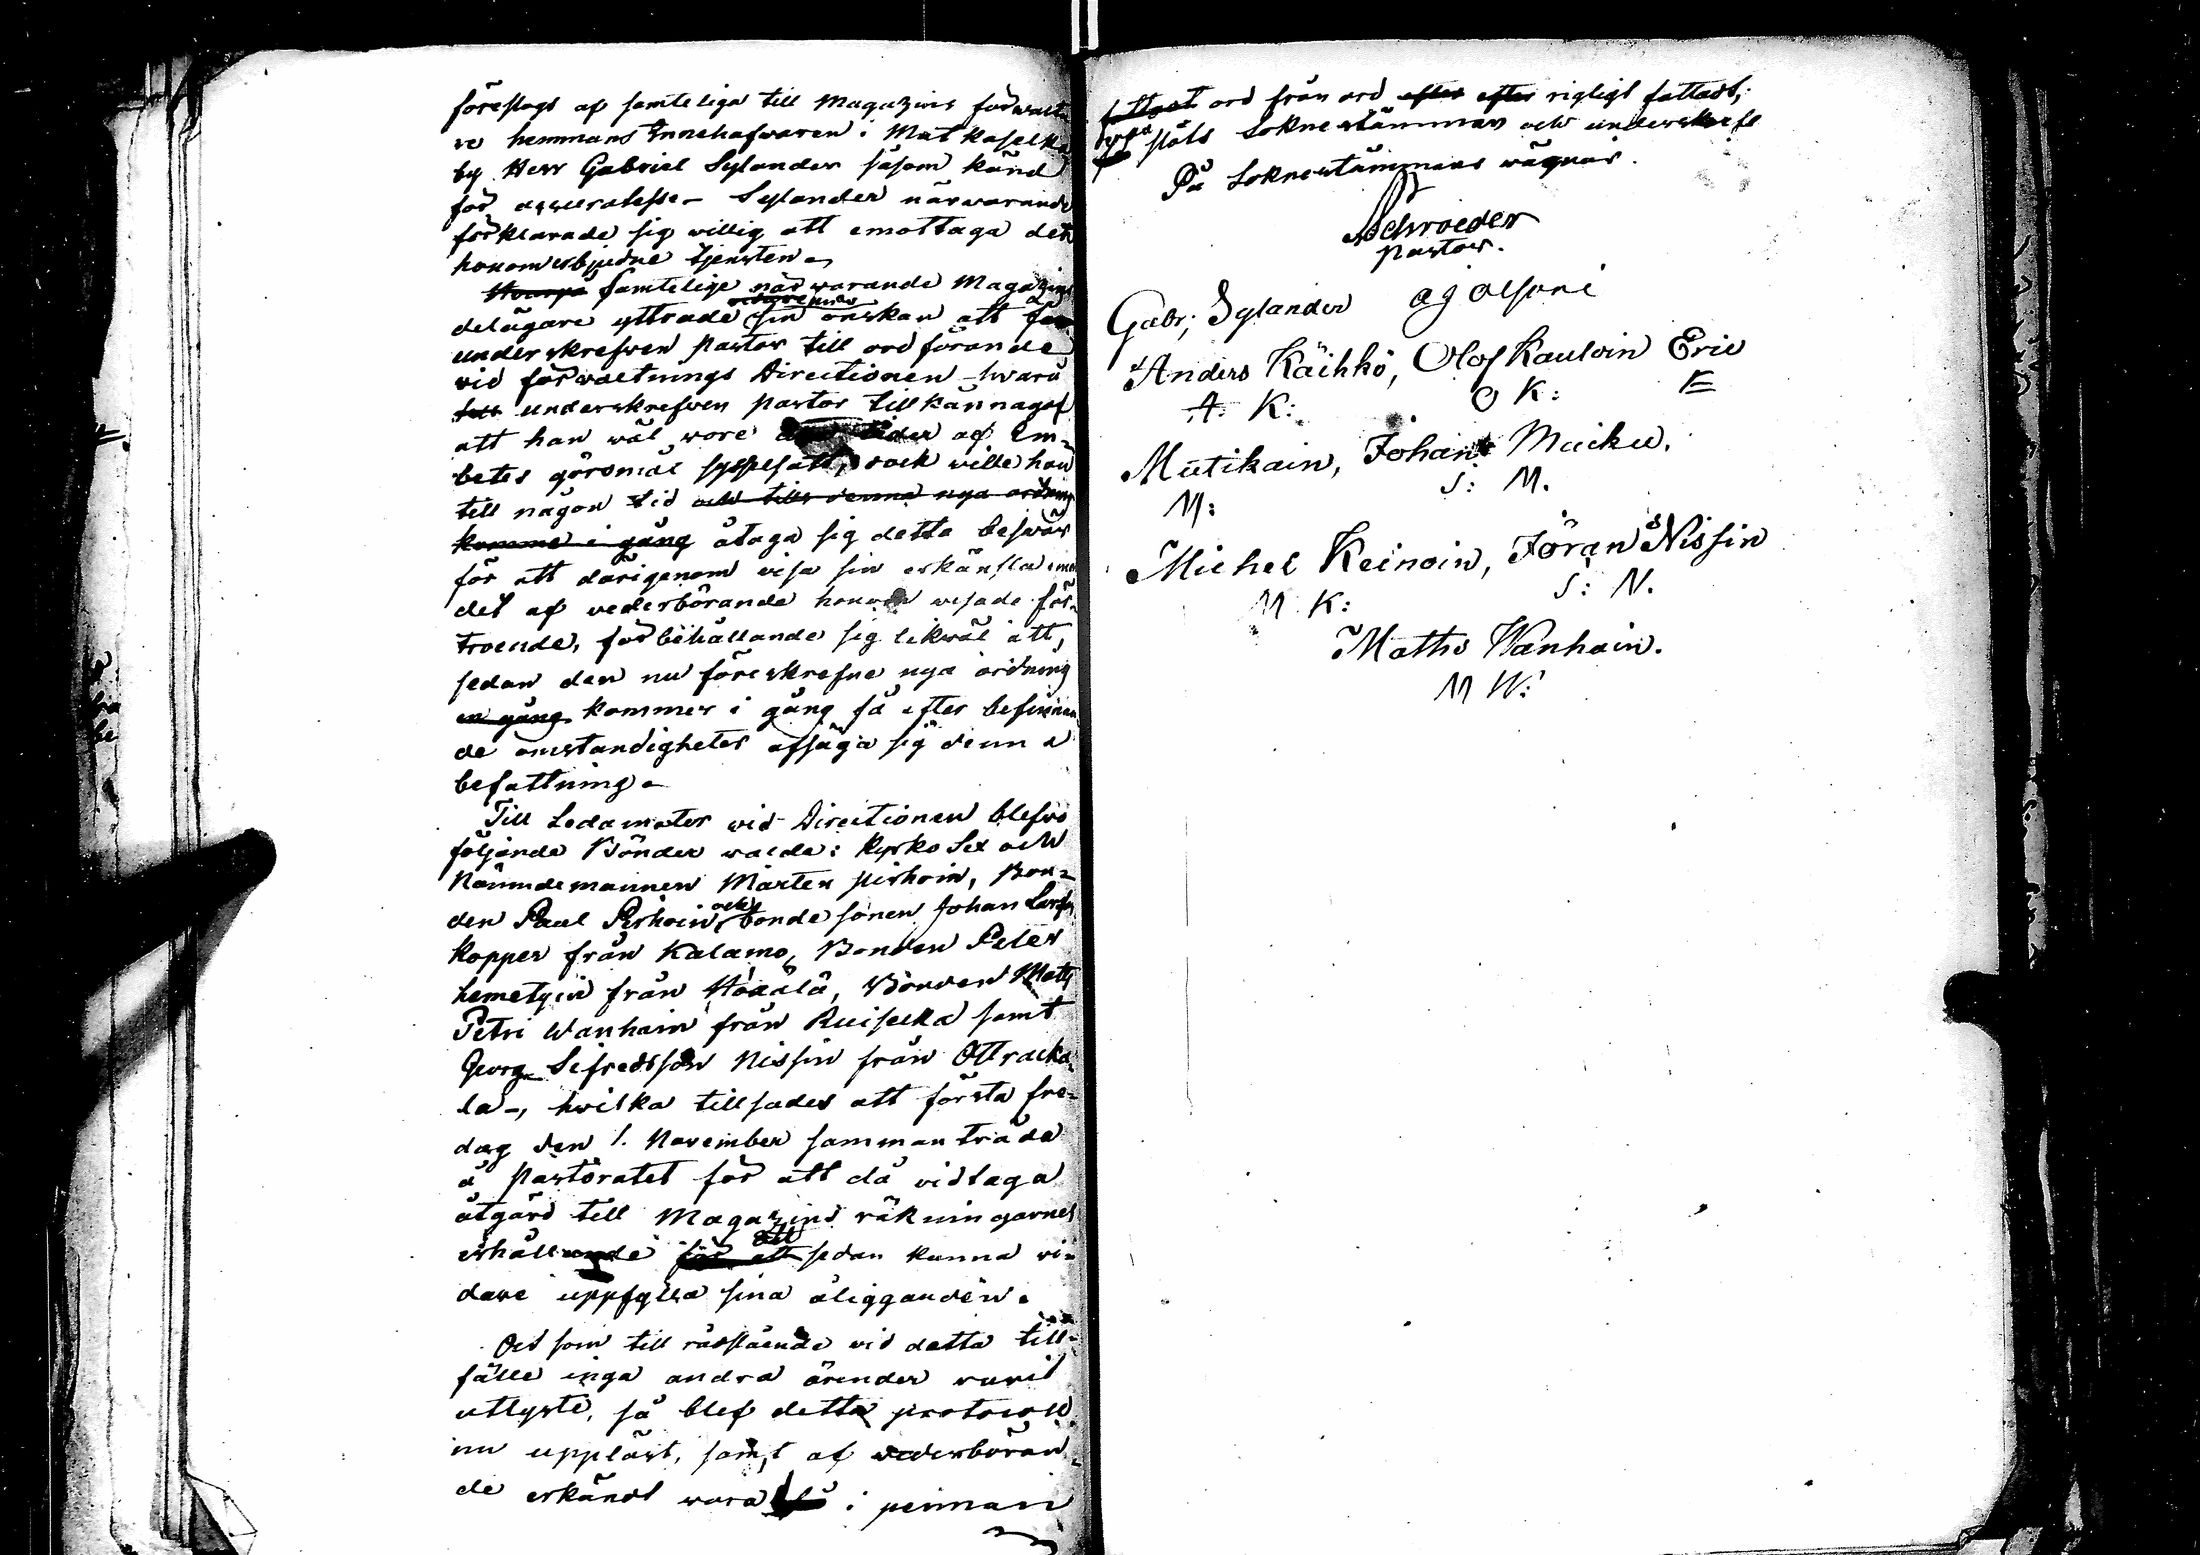 föreslogs af samtelige till Magazins förwalta
re hemmans Innehafwaren i Matkaselka
by Herr Gabriel Sylander såsom känd
för accuratesse - Sylander närwarande
förklarade sig willig att emottaga den
honom erbjudne tjensten.
samtelige närwarande Magazins
delägare yttrade sin önskan att få
underskrefwen pastor till ordförande
vid förwaltnings Directionen hwarå
underskrefwen pastor tillkännagaf
att han wäl wore af Em=
betes göromål sysselsatt, dock wille han
till någon tid och tills denna nya ordning
komme i gång åtaga sig detta beswär
för att därigenom visa sin erkänsla emot
det af vederbörande honom visade för=
troende, förbehållande sig likwäl att,
sedan den nu föreskrefne nya ordning
en gång kommer i gång få efter befinnan
de omständigheter afsäga sig denna
befattning.
Till Ledamoter vid Directionen blefwo
följande Bönder walda: Kyrko Sex och
Nämndemannen Mårten Pirhoin, Bon=
den Paul Pirhoin och bondesonen Johan Larsson
Kopper från Kalamo, Bonden Peter
hemetyin från , Bonden Matts
Petri Wanhain från Ruiselka samt
Georg Sifredsson Nissin från Ottracka
la, hwilka tillsades att första fre=
dag den 1. November sammanträda
å Pastoratet för att då vidtaga
åtgärd till Magazins räkningarnes
erhållande för att att sedan kunna vi=
dare uppfylla sina åligganden.
Och som till rådstående vid detta till=
fälle inga andra ärender varit
utlyste, så blef detta protocoll
nu uppläst, samt af wederböran=
de erkändt wara i pennan
fattat ord från ord efter efter rigtigt fattadt,
slöts Soknestämman och underskrefs
På Soknestämmans vägnar.
Schroeder
Pastor.
Gabr; Sylander
Anders Käihkö, Olof Kauloin Eric
A: K: O K: E
Mütikain, Johan Muiku.
M: J: M.
Michel Keinoin, Jöran Nissin
M K: J: N.
Maths Wanhain.
M W: